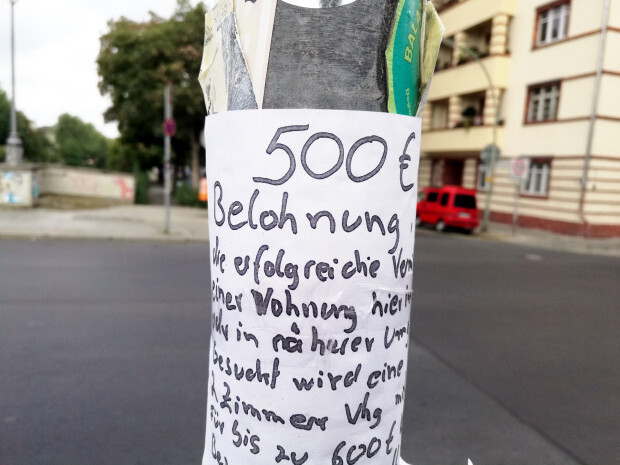 BAL
500 €
Belohnung
die erfolgreiche Verm
einer Wohnung hier in
oder in näherer Umg
Gesucht wird eine
2 Zimmer Whg
für bis zu 600€